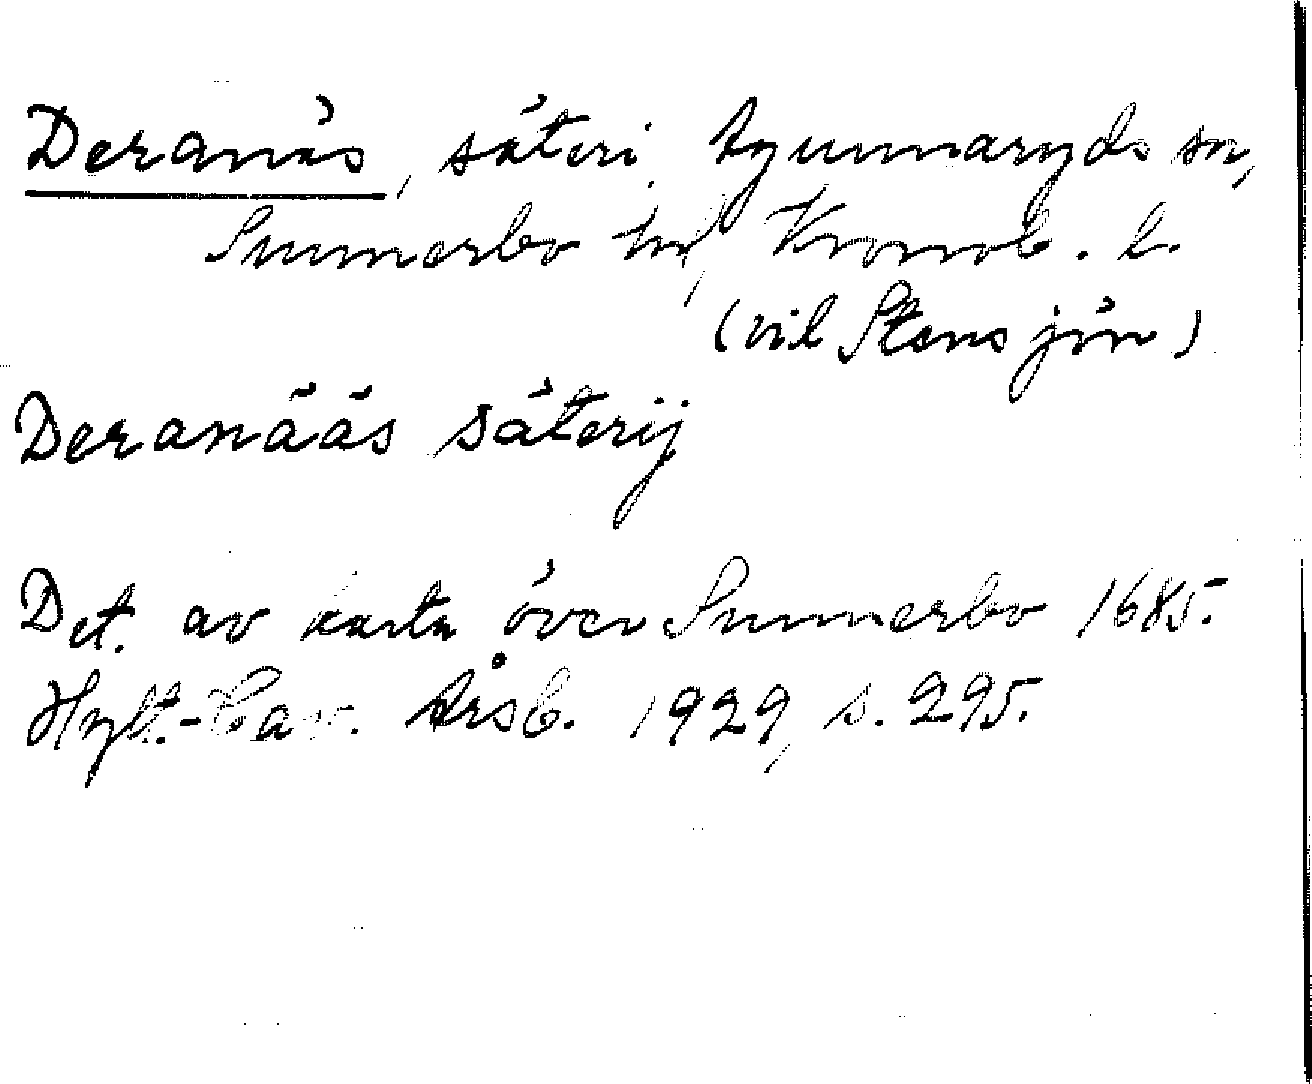 Deranäs, säteri, Agunnaryds sn,
Sunnerbo hd, Kronob. l.
(vid Stensjön)
Deranääs säterij
Det. av karta över Sunnerbo 1685.
Hylt.-Cav. Årsb. 1929, s. 295.